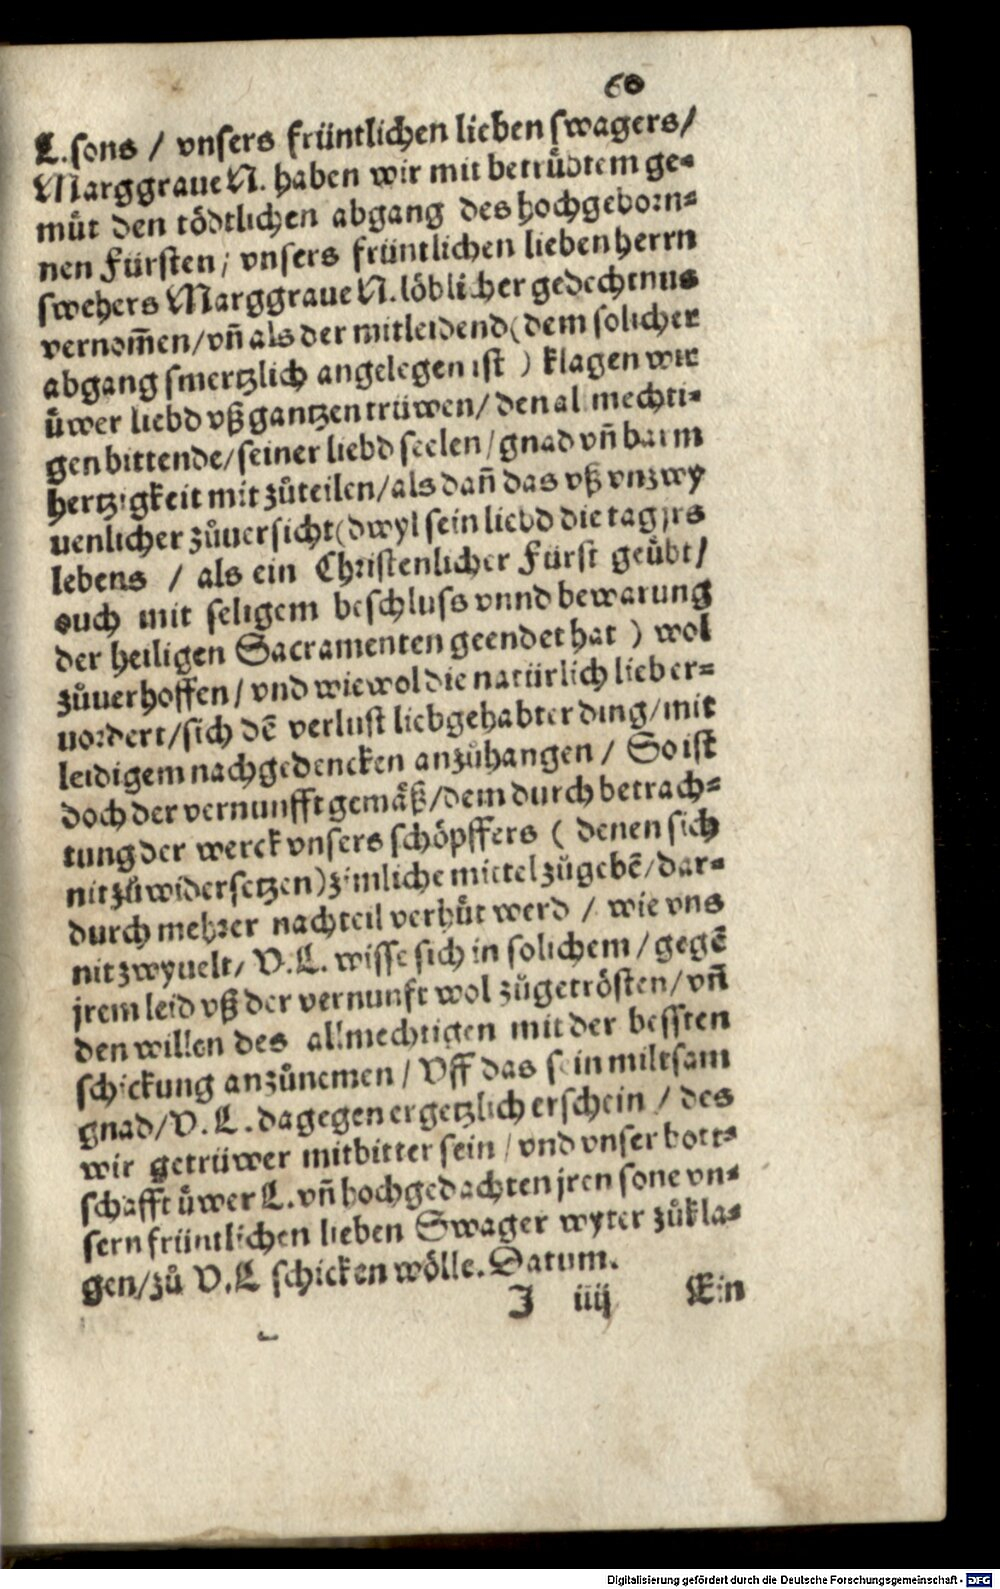 60
L. sons / vnsers früntlichen lieben swagers /
Marggraue N. haben wir mit betrůbtem ge⸗
můt den tödtlichen abgang des hochgeborn⸗
nen Fürsten / vnsers früntlichen lieben herrn
swehers Marggraue N. löblicher gedechtnus
vernom̄en / vñ als der mitleidend (dem solicher
abgang smertzlich angelegen ist) klagen wir
üwer liebd vß gantzen trüwen / den almechti⸗
gen bittende / seiner liebd seelen / gnad vñ barm
hertzigkeit mit zůteilen / als dañ das vß vnzwy
uenlicher zůuersicht (dwyl sein liebd die tag jrs
lebens / als ein Christenlicher Fürst geůbt /
ouch mit seligem beschluss vnnd bewarung
der heiligen Sacramenten geendet hat) wol
zůuerhoffen / vnd wiewol die natürlich lieb er⸗
uordert / sich dē verlust liebgehabter ding / mit
leidigem nachgedencken anzůhangen / So ist
doch der vernunfft gemäß / dem durch betrach⸗
tung der werck vnsers schöpffers (denen sich
nit zůwidersetzen) zimliche mittel zůgebē / dar⸗
durch mehrer nachteil verhůt werd / wie vns
nit zwyuelt / V. L. wisse sich in solichem / gegē
jrem leid vß der vernunft wol zůgetrösten / vñ
den willen des allmechtigen mit der bessten
schickung anzůnemen / Vff das sein miltsam
gnad / V. L. dagegen ergetzlich erschein / des
wir getrüwer mitbitter sein / vnd vnser bott⸗
schafft üwer L. vñ hochgedachten jren sone vn⸗
sern früntlichen lieben Swager wyter zůkla⸗
gen / zů V. L schicken wölle. Datum.
J iiij Ein
Digitalisierung gefördert durch die Deutsche Forschungsgemeinschaft - DFG